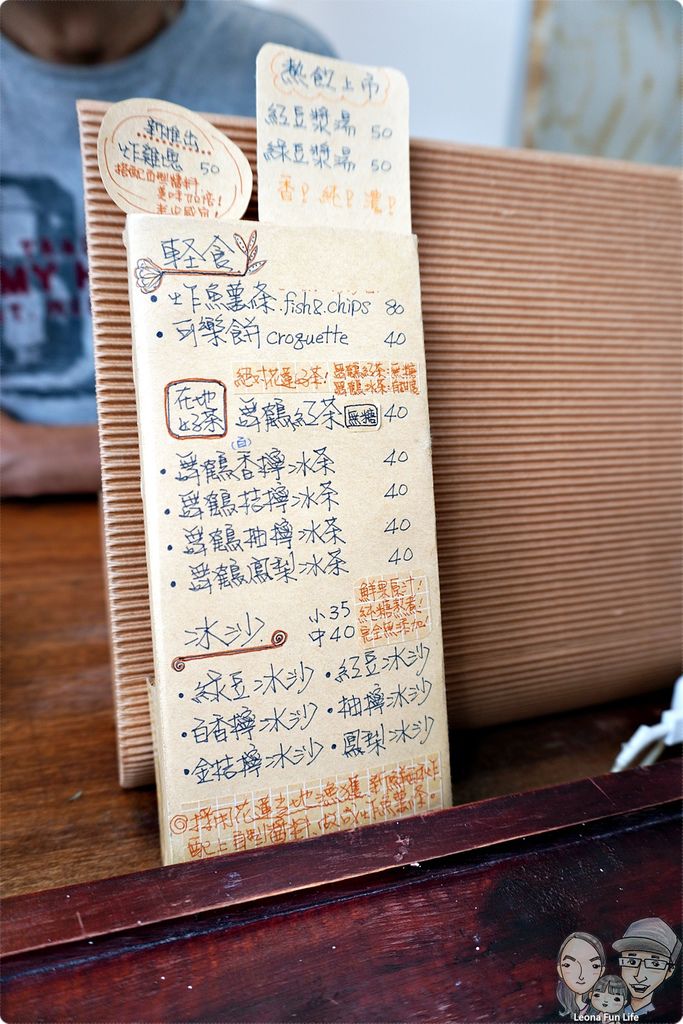 新推出
炸雞塊 50
搭配自製醬料
美味加倍!
熱飲上市
紅豆漿湯 50
綠豆漿湯 50
香!純!濃!
軽食
• 炸魚薯條.fish&chips 80
• 可樂餅 croquette 40
絕對花蓮好茶!
舞鶴紅茶:無糖
在地好茶
舞鶴紅茶 無糖 40
(百)
• 舞鶴香檸冰茶 40
• 舞鶴桔檸冰茶 40
• 舞鶴柚檸冰茶 40
• 舞鶴鳳梨冰茶 40
冰沙
小35
中40
鮮果原汁!
純糖熬煮!
完全無添加!
• 綠豆冰沙 • 紅豆冰沙
• 百香檸冰沙 • 柚檸冰沙
• 金桔檸冰沙 • 鳳梨冰沙
◎採用花蓮在地漁獲
配上自製醬料
MY
Leona Fun Life